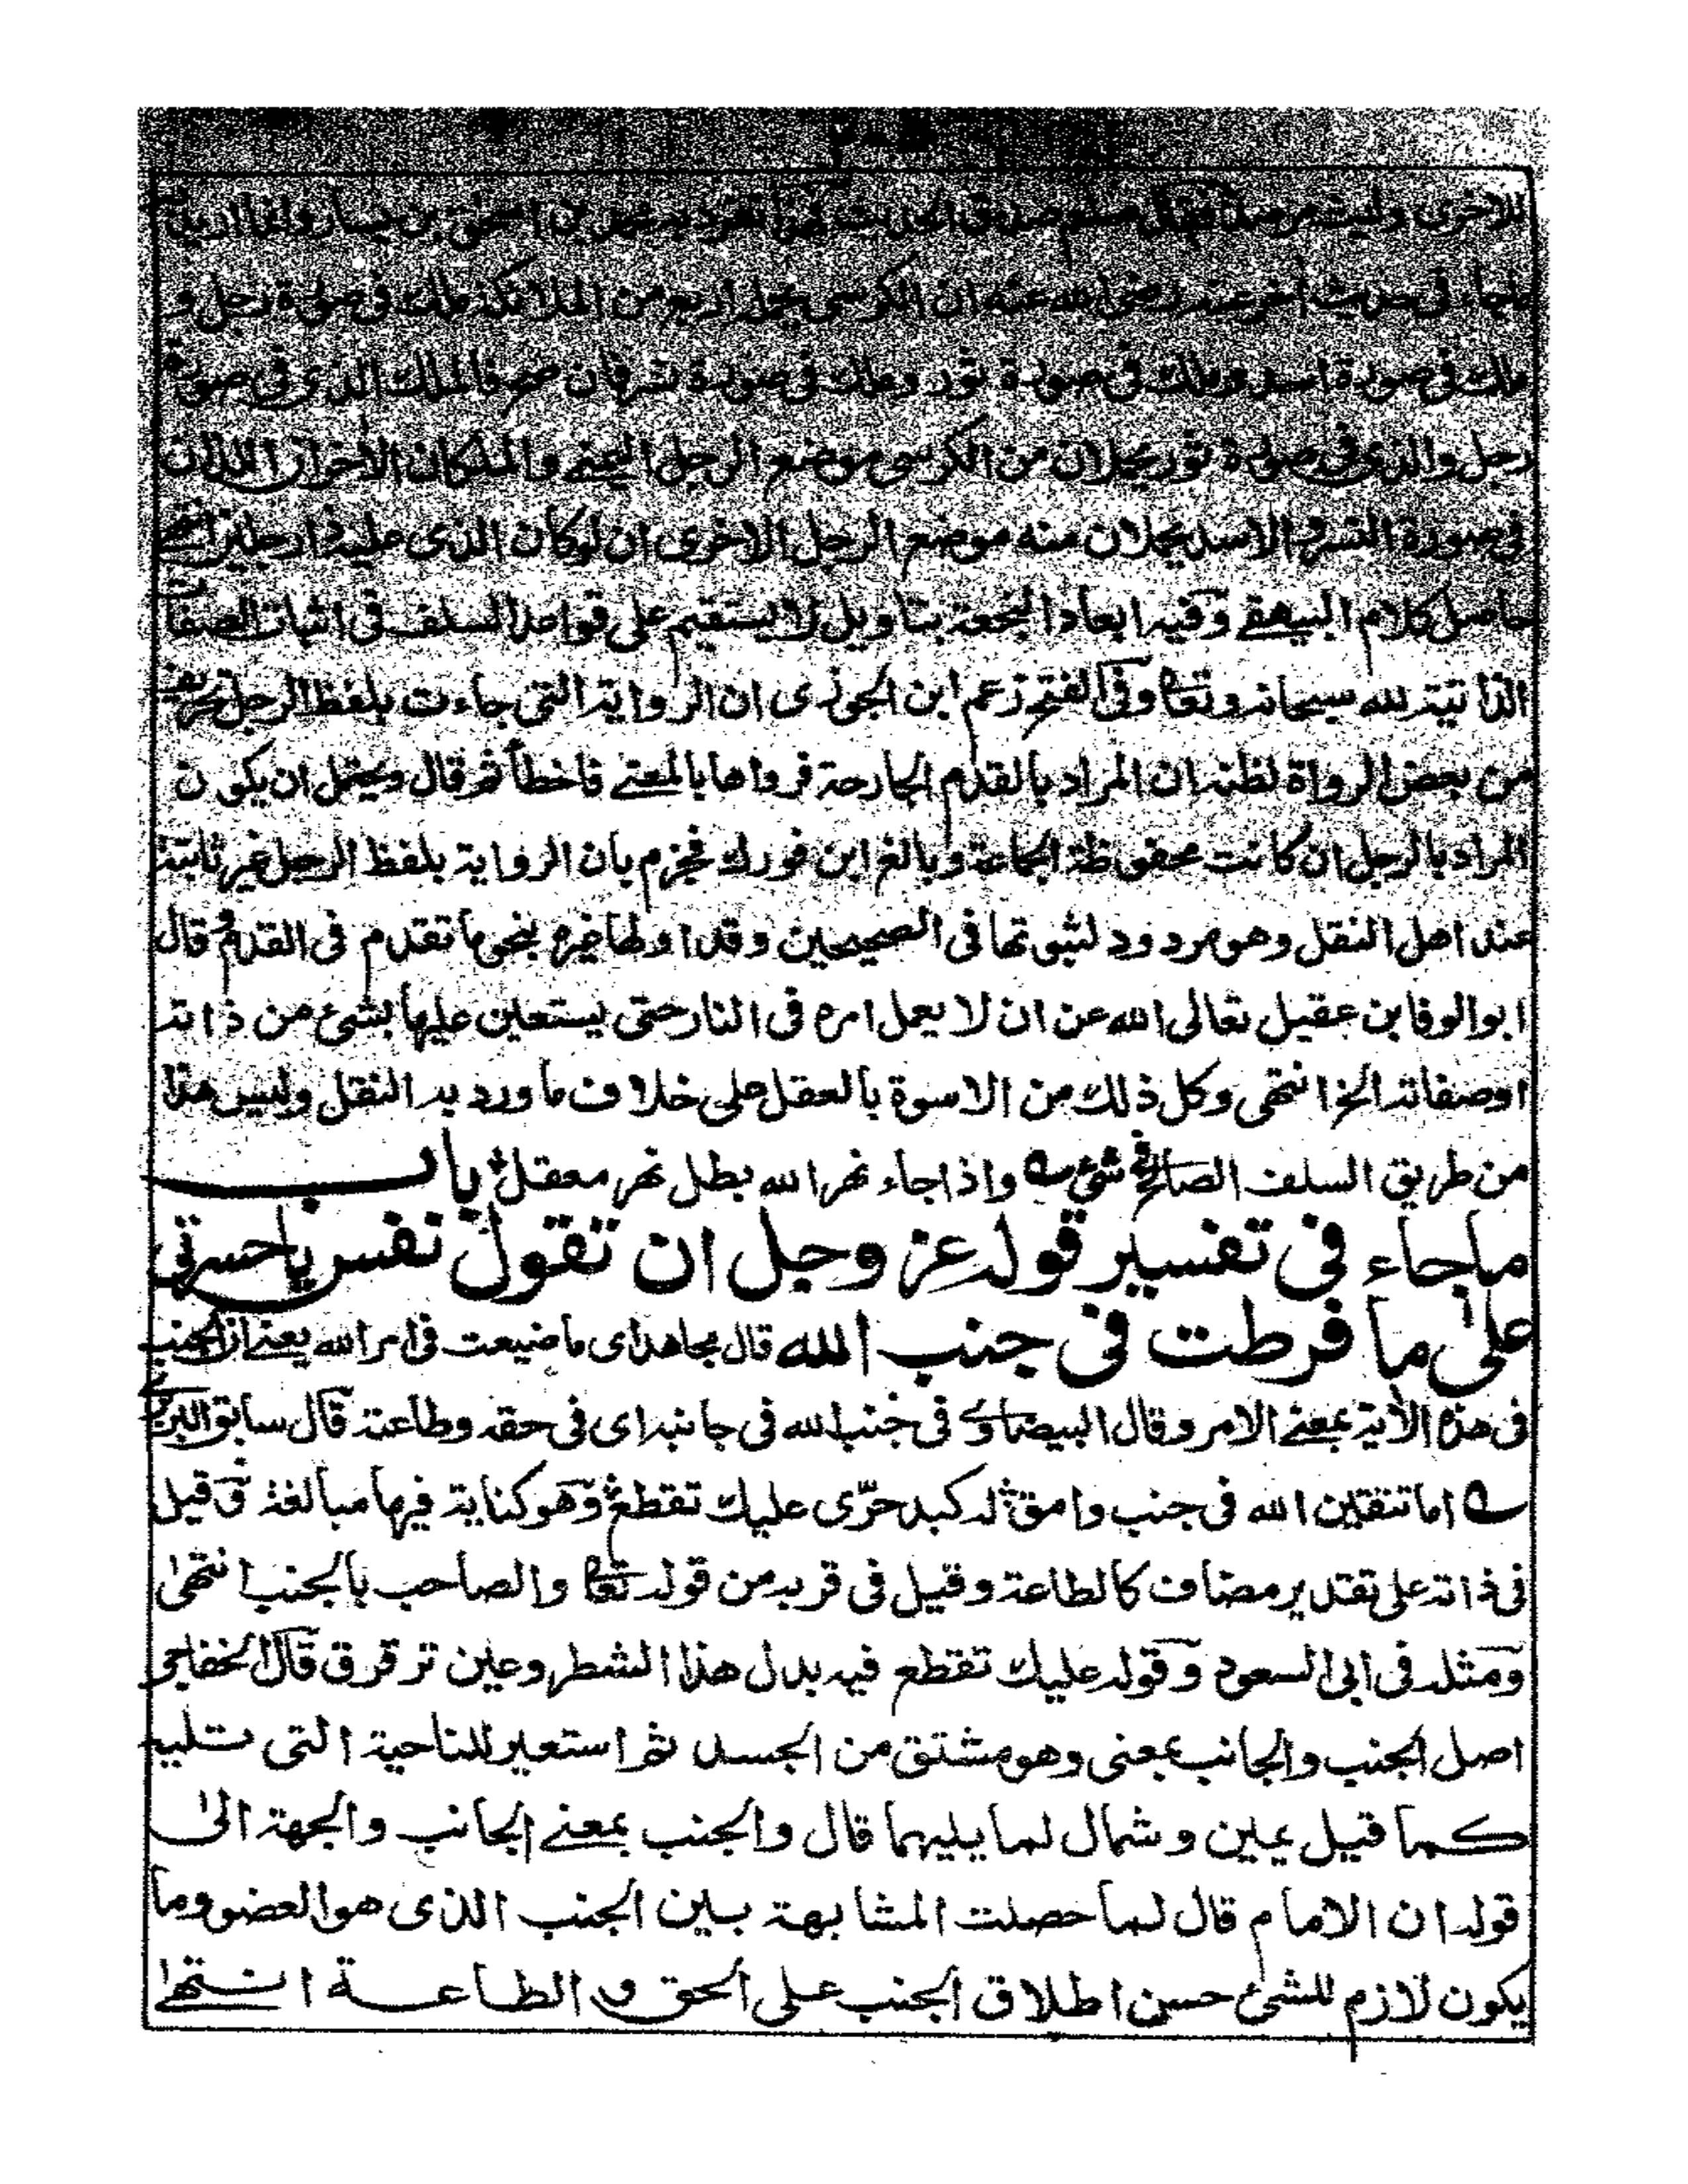 للاخرى وليث مرصد فقال صلعم صدق الحديث تفرد به محمد بن اسحق بن يسار وانما اريد
ماجاء فى حديث اخر عنه رضى الله عنه ان الكرسى يحمله اربعة من الملائكة ملك فى صورة رجل و
ملك فى صورة اسد وملك فى صورة ثور وملك فى صورة نسر فان صح فالملك الذى فى صورة
رجل والذى فى صورة ثور يحملان من الكرسى موضع الرجل اليمنى والملكان الاخران اللذان
فى صورة النسر والاسد يحملان منه موضع الرجل الاخرى ان لوكان الذى عليه ذا رجلين انتهى
حاصل كلام البيهقى وفيه ابعاد النجعة بتاويل لا يستقيم على قواعد السلف فى اثبات الصفات
الذاتية لله سبحانه وتعا وفى الفتح زعم ابن الجوزى ان الرواية التى جاءت بلفظ الرجل تحريف
من بعض الرواة لظنه ان المراد بالقدم الجارحة فرواها بالمعنى فاخطأ ثم قال ويحتمل ان يكون
المراد بالرجل ان كانت محفوظة الجماعة وبالغ ابن فورك فجزم بان الرواية بلفظ الرجل غير ثابتة
عند اهل النقل وهو مردود لثبوتها فى الصحيحين وقد اولها غيره بنحو ما تقدم فى القدم قال
ابو الوفا بن عقيل تعالى الله عن ان لا يعمل امره فى النار حتى يستعين عليها بشئ من ذاته
اوصفاته الخ انتهى وكل ذلك من الاسوة بالعقل على خلاف ما ورد به النقل وليس هذا
من طريق السلف الصالح فى شئ واذا جاء نهر الله بطل نهر معقل باب
ماجاء فى تفسير قوله عز وجل ان تقول نفس ياحسرتى
على ما فرطت فى جنب الله قال مجاهد اى ما ضيعت فى امر الله يعنى ان الجنب
فى هذه الأية بمعنى الامر وقال البيضاوى فى جنب الله فى جانبه اى فى حقه وطاعته قال سابق البربرى
اما تتقين الله فى جنب وامق له كبد حرّى عليك تقطع وهو كناية فيها مبالغة وقيل
فى ذاته على تقدير مضاف كالطاعة وقيل فى قربه من قوله تعا والصاحب بالجنب انتهى
ومثله فى ابى السعود وقوله عليك تقطع فيه بدل هذا الشطر وعين ترقرق قال الخفاجى
اصل الجنب والجانب بمعنى وهو مشتق من الجسد ثم استعير للناحية التى تليه
كما قيل يمين وشمال لما يليهما قال والجنب بمعنى الجانب والجهة الى
قوله ان الامام قال لما حصلت المشابهة بين الجنب الذى هو العضو وما
يكون لازم للشئ حسن اطلاق الجنب على الحق والطاعة انتهى